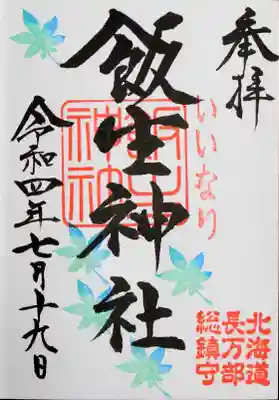 奉拝
いいなり
北海道
長万部
総鎮守
飯生神社
令和四年七月十九日